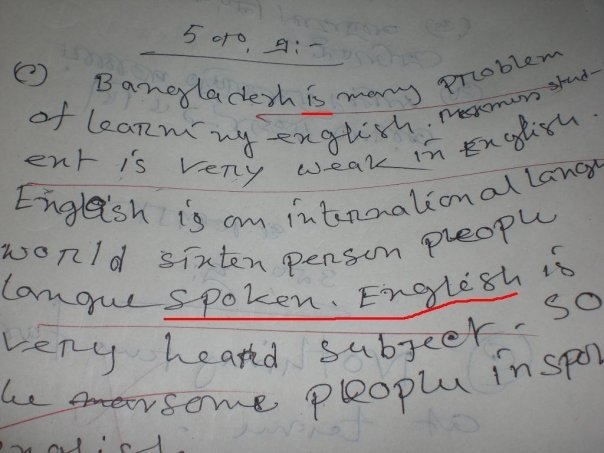 5 নং প্র:-
(c) Bangladesh is many problem
of learning english. Maximum stud-
ent is very weak in English.
English is an international langu
world sixten person people
langue spoken. English is
very heard subject. so
he some people in spok
english